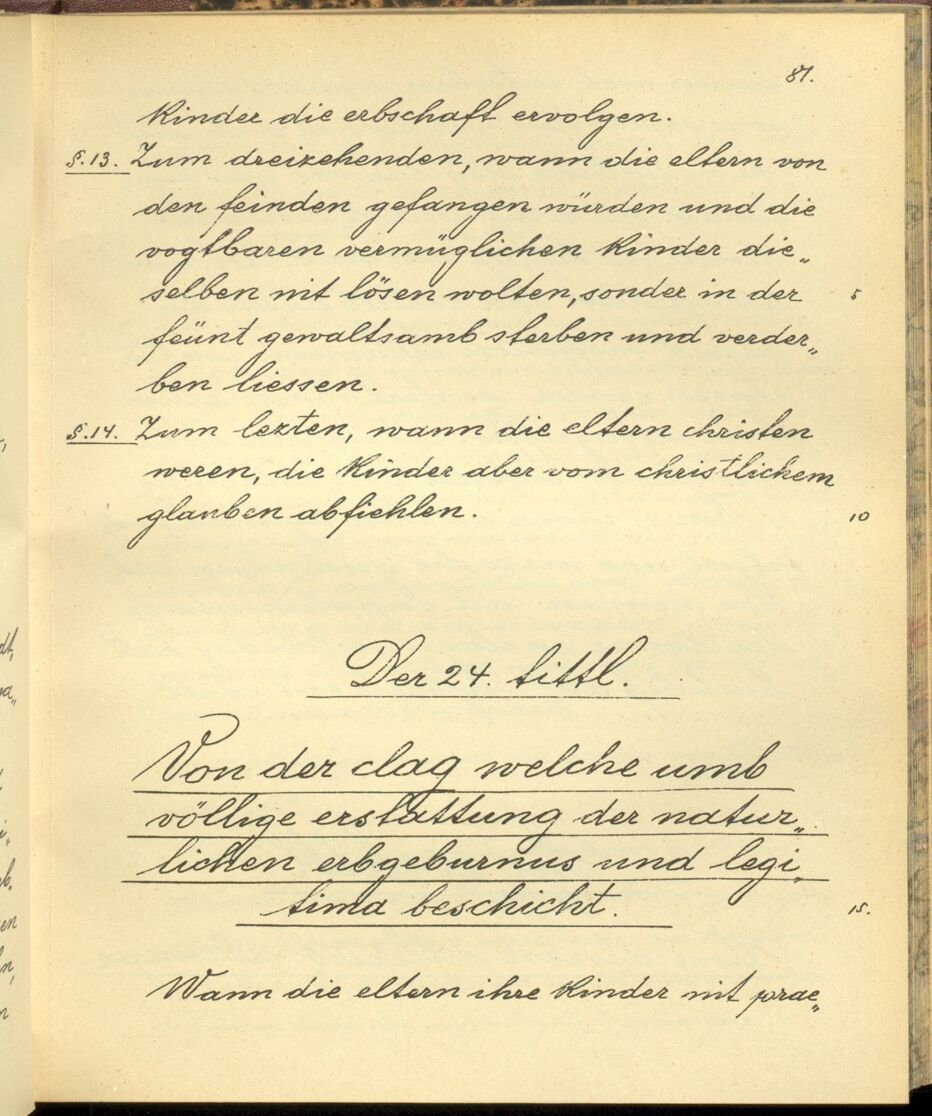 81.
kinder die erbschaft ervolgen.
§.13. Zum dreizehenden, wann die eltern von
den feinden gefangen würden und die
vogtbaren vermüglichen kinder die„
selben nit lösen wolten, sonder in der 5
feünt gewaltsamb sterben und verder„
ben liessen.
§.14. Zum lezten, wann die eltern christen
weren, die kinder aber vom christlichem
glauben abfiehlen. 10
Der 24. tittl.
Von der clag welche umb
völlige erstattung der natur„
lichen erbgeburnus und legi„
tima beschicht. 15.
Wann die eltern ihre kinder nit prae„